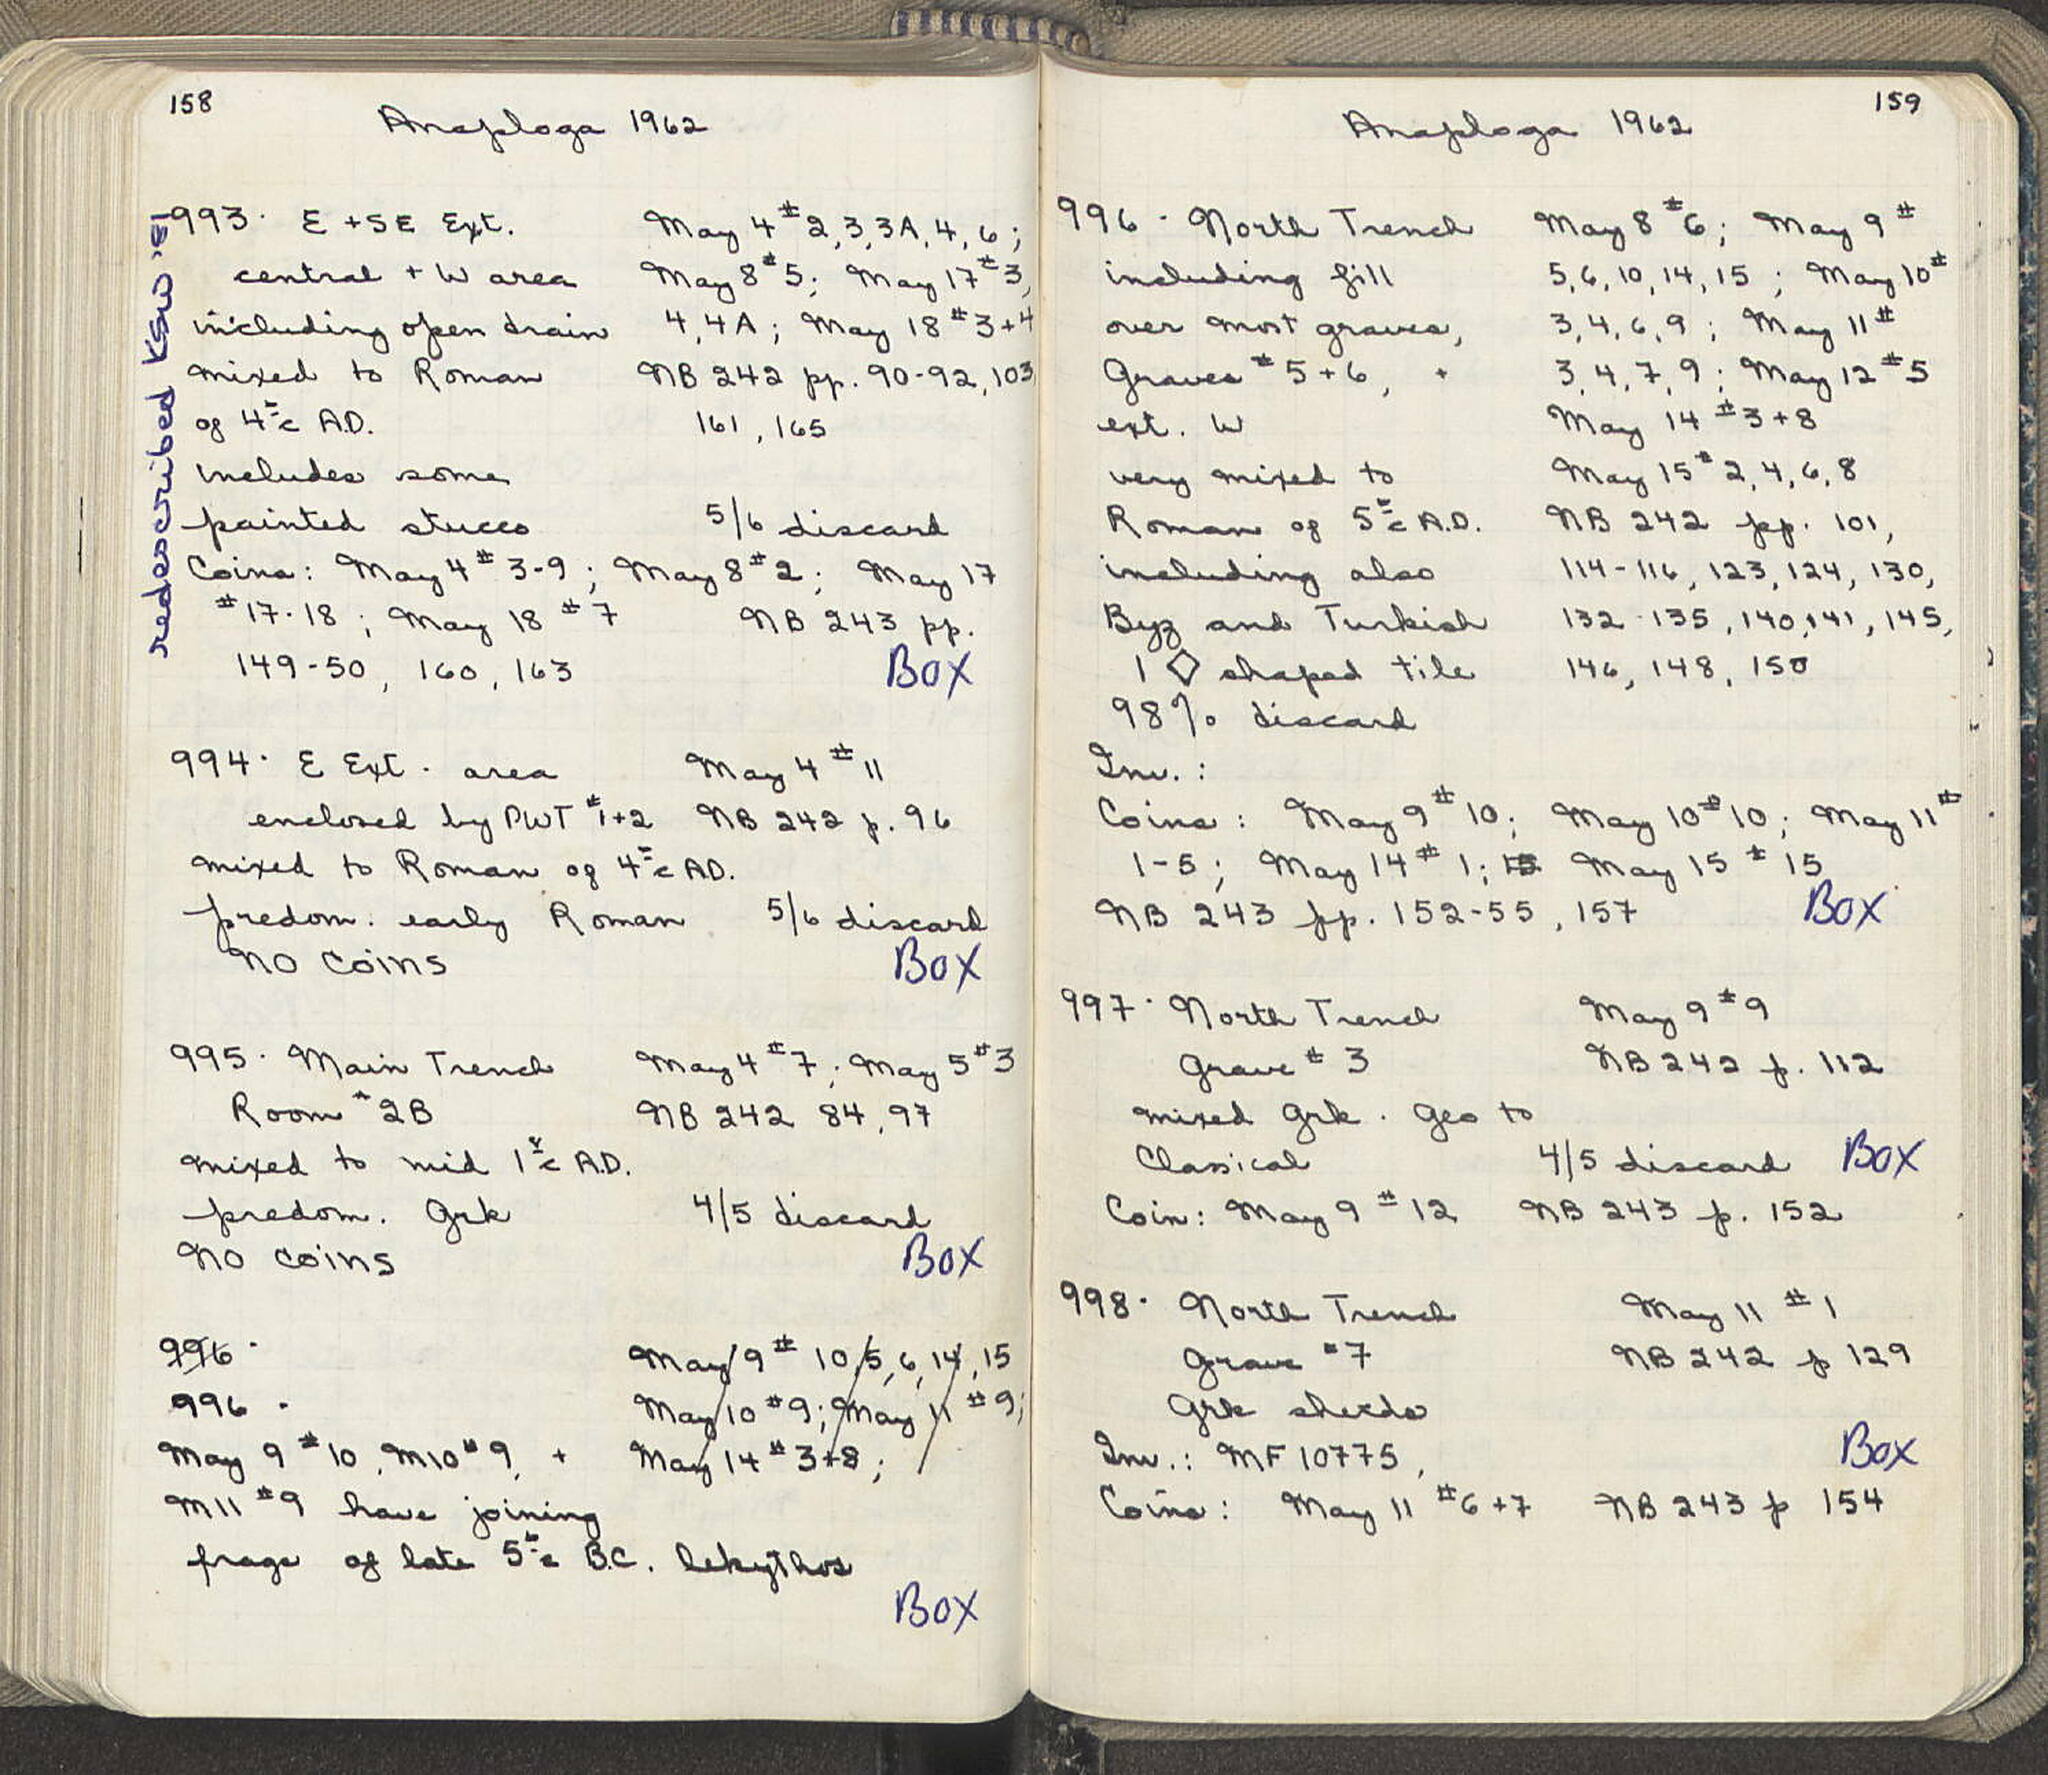 158
Anaploga 1962
redescribed KSW '81
993. E + SE Ext. May 4 # 2, 3, 3A, 4, 6;
central + W area May 8 # 5; May 17 # 3,
including open drain 4, 4A; May 18 # 3+4
mixed to Roman NB 242 pp. 90-92, 103
of 4th c A.D. 161, 165
includes some
painted stucco 5/6 discard
Coins: May 4 # 3-9; May 8 # 2; May 17
# 17-18; May 18 # 7 NB 243 pp.
149-50, 160, 163 BOX
994. E Ext. area May 4 # 11
enclosed by PWT # 1+2 NB 242 p. 96
mixed to Roman of 4th c AD.
predom. early Roman 5/6 discard
NO COINS BOX
995. Main Trench May 4 # 7; May 5 # 3
Room # 2B NB 242 84, 97
mixed to mid 1st c A.D.
predom. Grk 4/5 discard
NO COINS BOX
996. May 9 # 10, 5, 6, 14, 15
996. May 10 # 9; May 11 # 9;
May 9 # 10, M10 # 9, + May 14 # 3+8;
M11 # 9 have joining
frags of late 5th c B.C. lekythos
BOX
159
Anaploga 1962
996. North Trench May 8 # 6; May 9 #
including fill 5, 6, 10, 14, 15; May 10 #
over most graves, 3, 4, 6, 9; May 11 #
Graves # 5+6, + 3, 4, 7, 9; May 12 # 5
ext. W May 14 # 3+8
very mixed to May 15 # 2, 4, 6, 8
Roman of 5th c A.D. NB 242 pp. 101,
including also 114-116, 123, 124, 130,
Byz and Turkish 132-135, 140, 141, 145,
1 ◇ shaped tile 146, 148, 150
98% discard
Inv.:
Coins: May 9 # 10; May 10 # 10; May 11 #
1-5; May 14 # 1; May 15 # 15
NB 243 pp. 152-55, 157 BOX
997. North Trench May 9 # 9
Grave # 3 NB 242 p. 112
mixed Grk. Geo to
Classical 4/5 discard BOX
Coin: May 9 # 12 NB 243 p. 152
998. North Trench May 11 # 1
Grave # 7 NB 242 p 129
Grk sherds
Inv.: MF 10775, BOX
Coins: May 11 # 6+7 NB 243 p 154